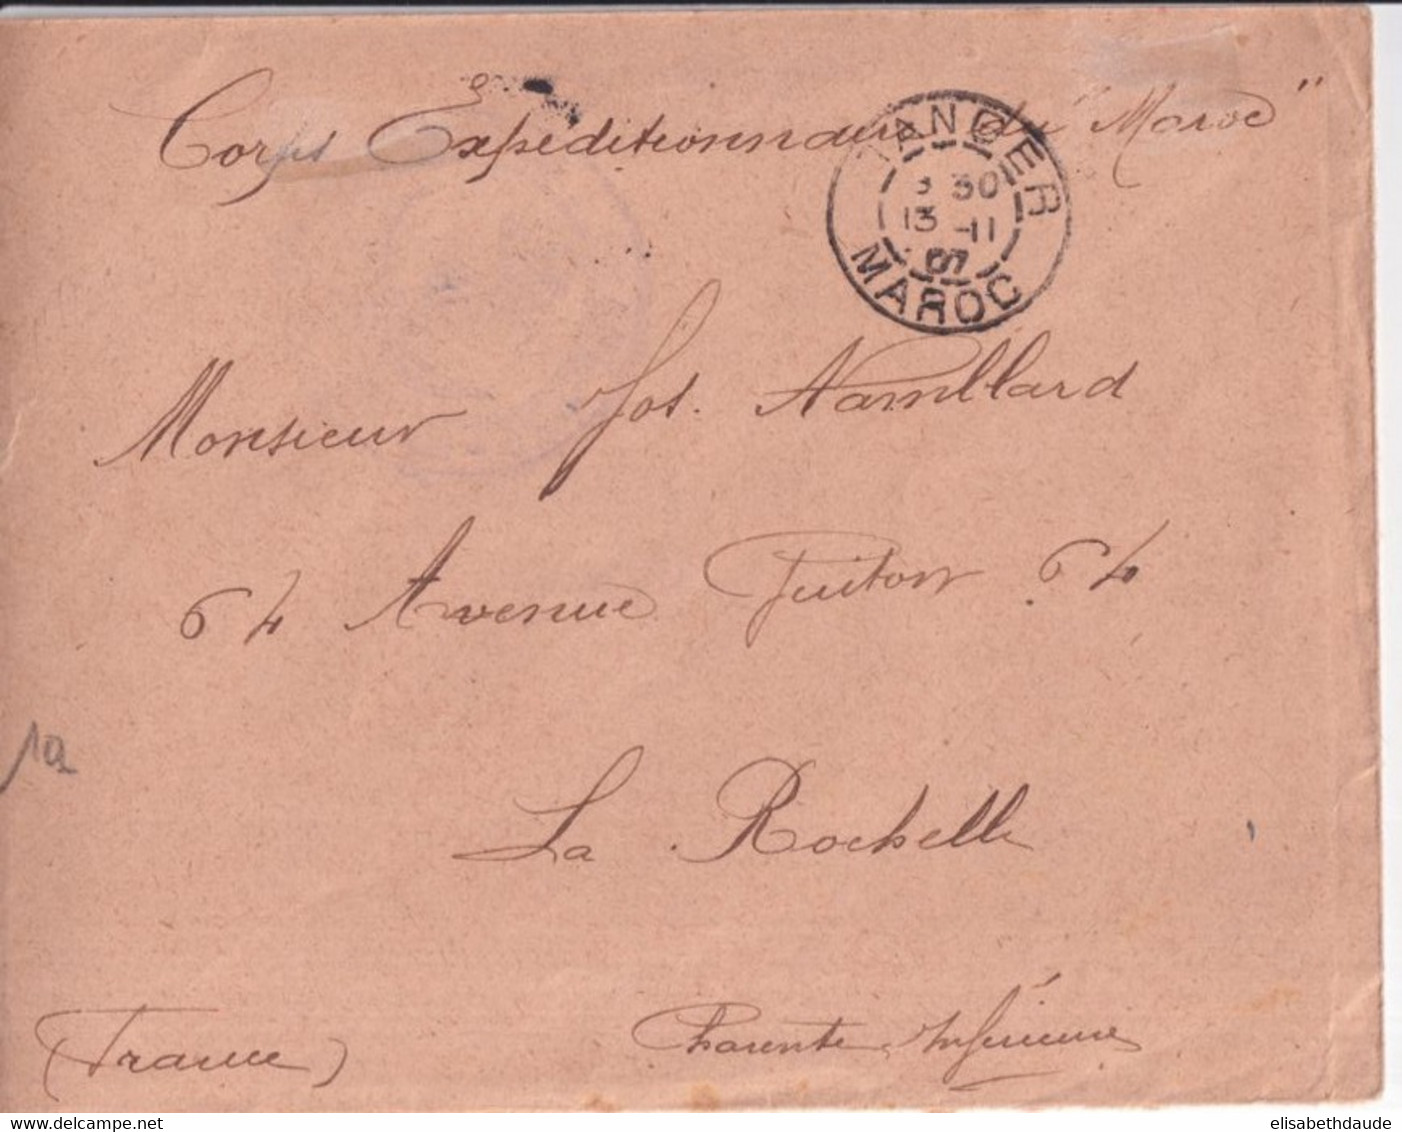 Corps Expéditionnaire du "Maroc"
TANGER
3 30
13 -11
MAROC
Monsieur Jos.
64 Avenue Guiton 64
La Rochelle
(France) Charente Inférieure
elisabethdaude